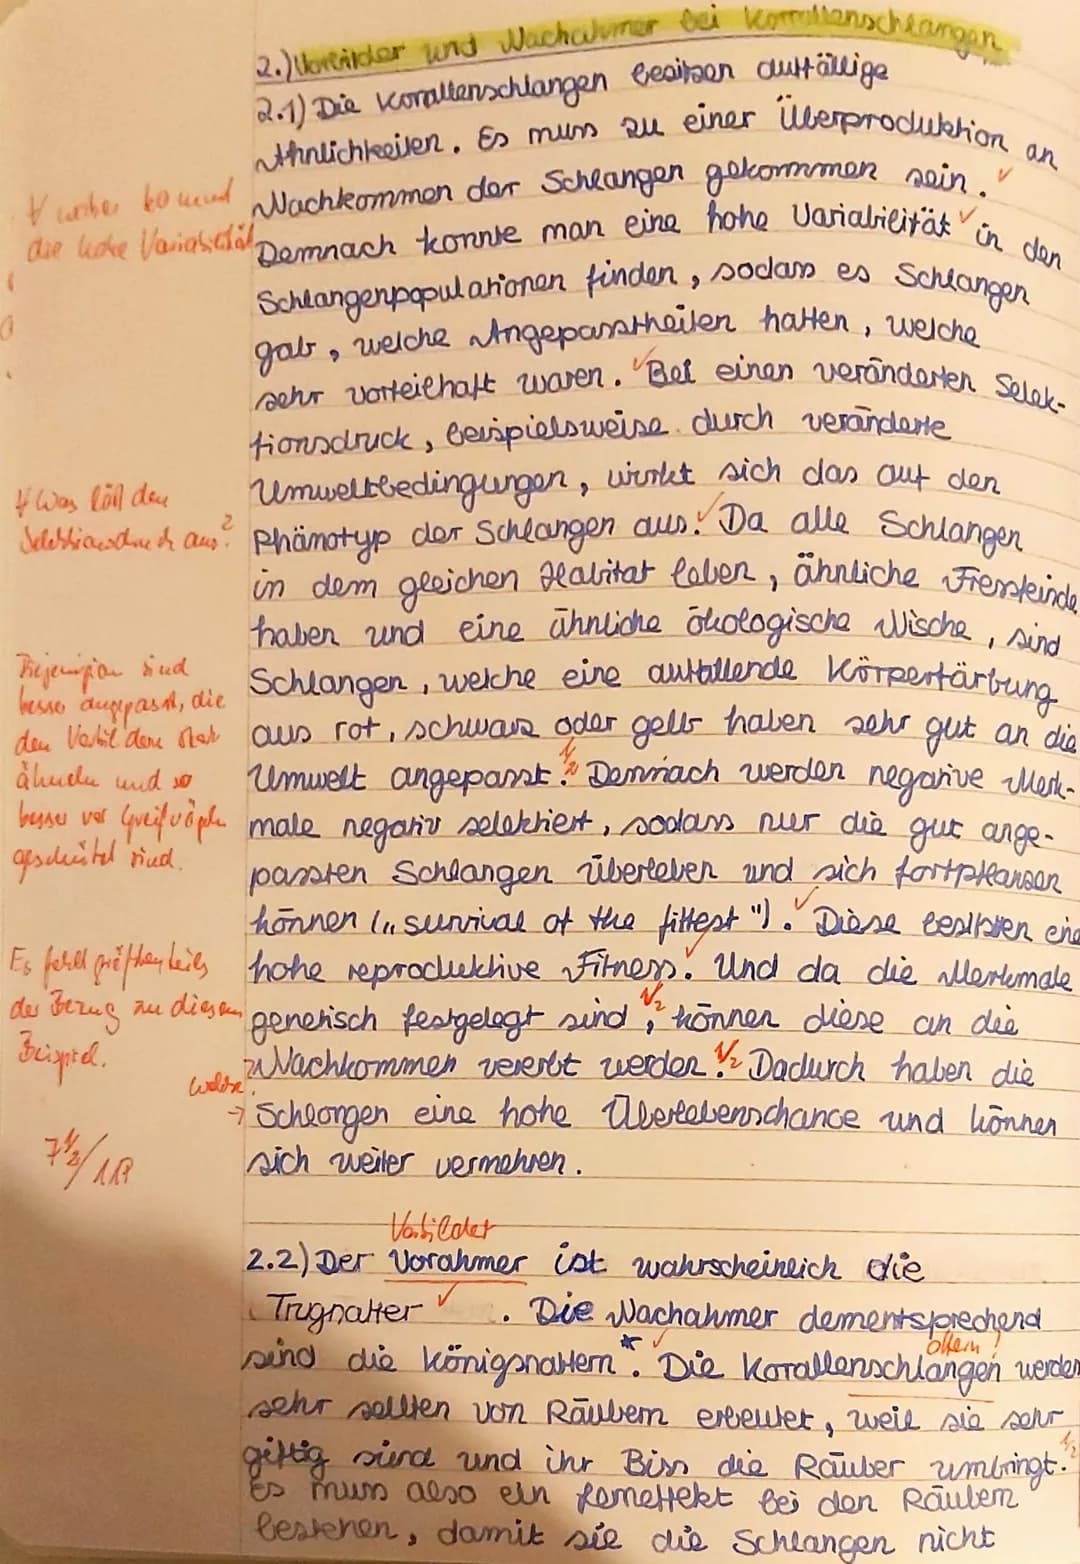 2.) Vorbilder und Nachahmer bei Korallenschlangen
2.1) Die Korallenschlangen besitzen auffällige
Ähnlichkeiten. Es muss zu einer Überproduktion an
Nachkommen der Schlangen gekommen sein. ✓
↯ woher kommt
die hohe Variabilität
Demnach konnte man eine hohe Variabilität ✓ in den
Schlangenpopulationen finden, sodass es Schlangen
gab, welche Angepasstheiten hatten, welche
sehr vorteilhaft waren. ✓ Bei einen veränderten Selek-
tionsdruck, beispielsweise durch veränderte
Umweltbedingungen, wirkt sich das auf den
↯ Was löst den
Selektionsdruck aus?
Phänotyp der Schlangen aus. ✓ Da alle Schlangen
in dem gleichen Habitat leben, ähnliche Fressfeinde
haben und eine ähnliche ökologische Nische, sind
Schlangen, welche eine auffallende Körperfärbung
aus rot, schwarz oder gelb haben sehr gut an die
Umwelt angepasst. ½ Demnach werden negative Merk-
Diejenigen sind
besser angepasst, die
den Vorbildern stark
ähneln und so
besser vor Greifvögeln
geschützt sind.
male negativ selektiert, sodass nur die gut ange-
passten Schlangen überleben und sich fortpflanzen
können („survival of the fittest"). ✓ Diese besitzen eine
hohe reproduktive Fitness. ✓ Und da die Merkmale
Es fehlt größtenteils
der Bezug zu diesem
Beispiel.
genetisch festgelegt sind ½, können diese an die
Nachkommen vererbt werden. ½ Dadurch haben die
welche?
→ Schlangen eine hohe Überlebenschance und können
sich weiter vermehren.
7½/11P
Vorbilder
2.2) Der Vorahmer ist wahrscheinlich die
Trugnatter ✓ . Die Nachahmer dementsprechend
sind die Königsnattern *. ✓ Die Korallenschlangen werden
sehr selten von Räubern erbeutet, weil sie sehr
giftig sind und ihr Biss die Räuber umbringt. ½
Es muss also ein Lerneffekt bei den Räubern
bestehen, damit sie die Schlangen nicht